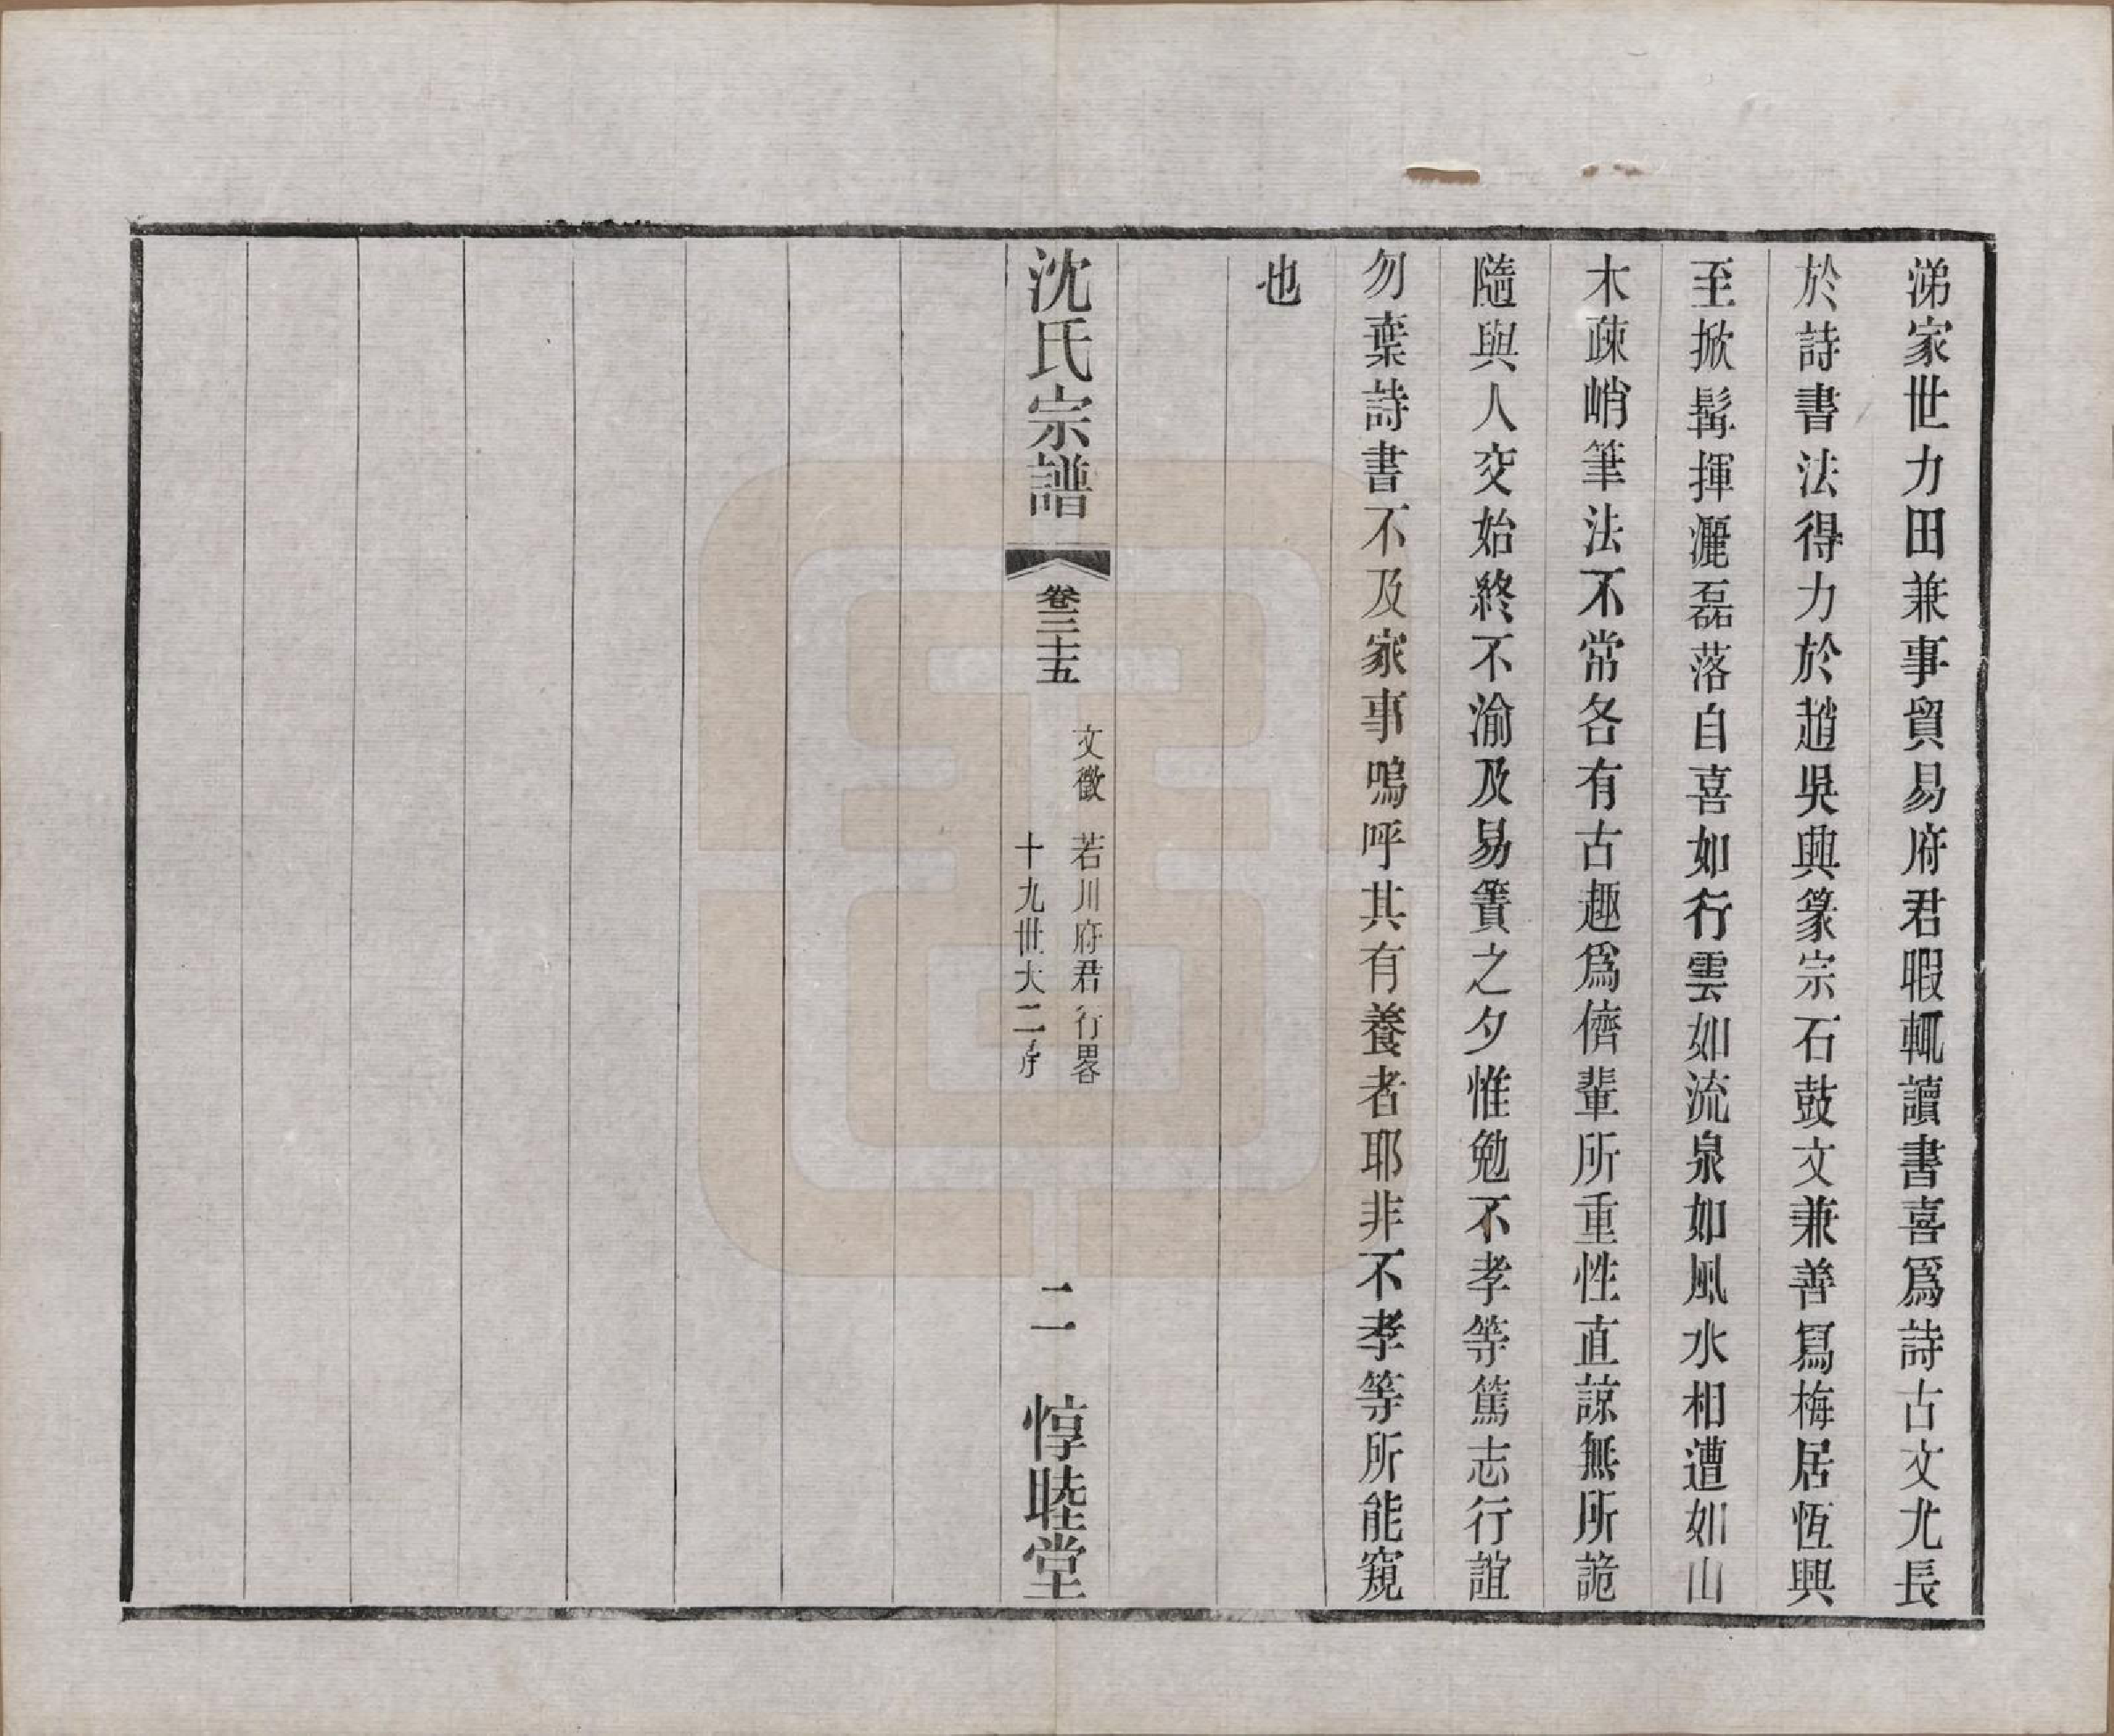 涕家世力田兼事貿易府君暇輒讀書喜爲詩古文尤長
於詩書法得力於趙吳興篆宗石鼓文兼善寫梅居恆興
至掀髯揮灑磊落自喜如行雲如流泉如風水相遭如山
木疎峭筆法不常各有古趣爲儕輩所重性直諒無所詭
隨與人交始終不渝及易簀之夕惟勉不孝等篤志行誼
勿棄詩書不及家事嗚呼其有養者耶非不孝等所能窺
也
沈氏宗譜
卷三十五
文徵
若川府君行畧
十九世大二房
二
惇睦堂